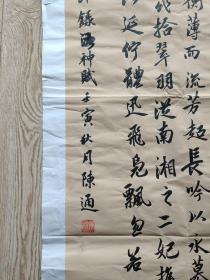 蘅薄而流芳超長吟以永慕
或拾翠羽從南湘之二妃攜
延佇體迅飛鳧飄忽若
錄洛神賦壬寅秋月陳